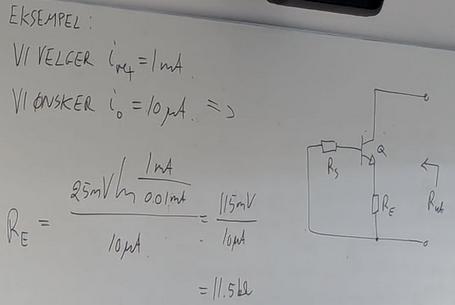 EKSEMPEL:
VI VELGER i_ref = 1mA
VI ØNSKER i_o = 10µA. =>
R_E = 25mV ln 1mA/0.01mA / 10µA = 115mV / 10µA
= 11.5kΩ
R_S
Q
R_E
R_ut